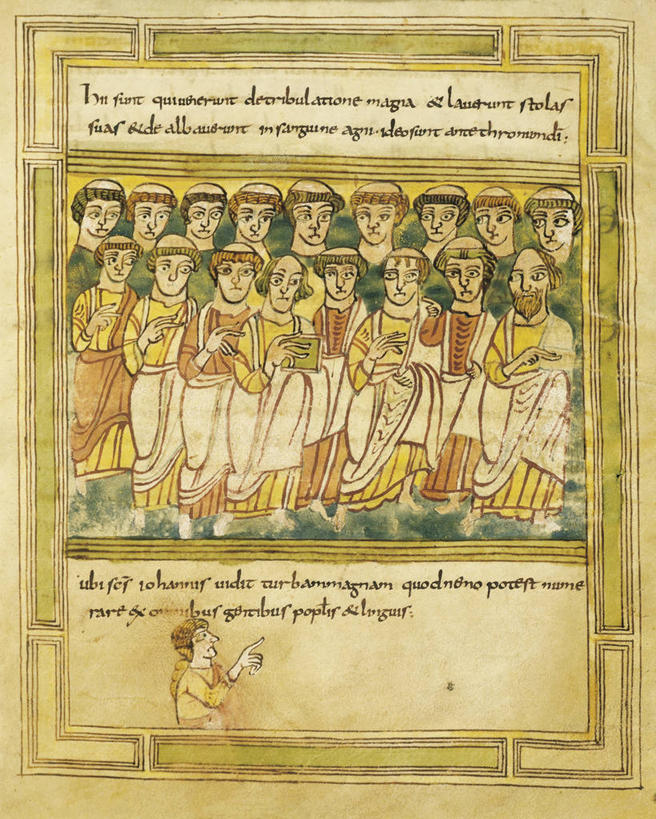 hii sunt qui uenerunt detribulatione magna & lauerunt stolas
suas & de albauerunt insanguine agni · ideo sunt ante thronum di;
ubi scs iohannis uidit turbammagnam quod nemo potest nume
rare ex omnibus gentibus poplis & linguis;